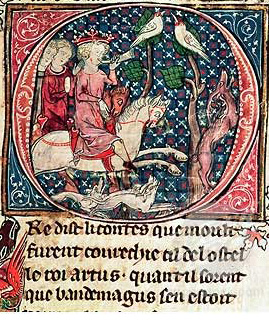 Re dist li contes que moult
furent courechie cil del ostel
le roi artus. quant il sorent
que bandemagus sen estoit